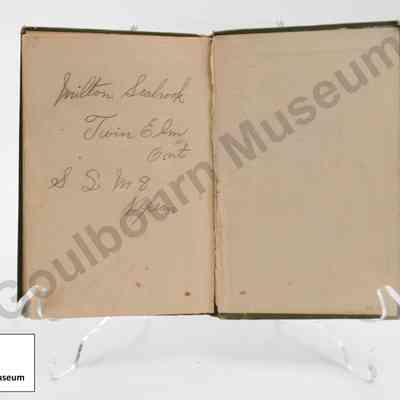 Milton Seabrook
Twin Elm
Ont
S S No 8
Goulbourn Museum
useum